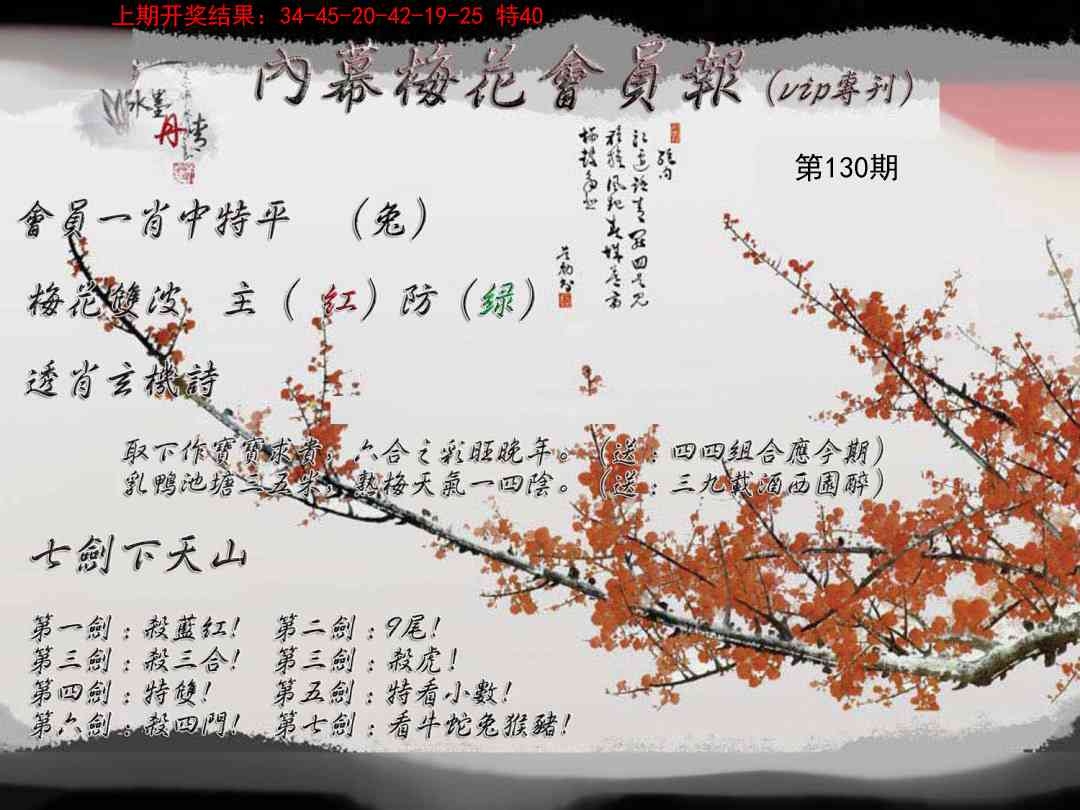 上期开奖结果：34-45-20-42-19-25 特40
內幕梅花會員報（vip專刊）
水墨丹青
第130期
會員一肖中特平　（兔）
梅花雙波　主（ 紅）防（綠）
透肖玄機詩
取下作寶寶求貴，六合之彩旺晚年。（送：四四組合應今期）
乳鴨池塘三五米，熟梅天氣一四陰。（送：三九載酒西園醉）
七劍下天山
第一劍：殺藍紅！　第二劍：9尾！
第三劍：殺三合！　第三劍：殺虎！
第四劍：特雙！　第五劍：特看小數！
第六劍：殺四門！　第七劍：看牛蛇兔猴豬！